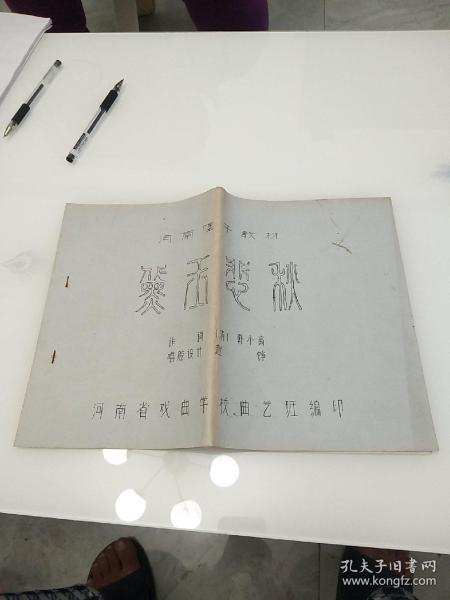 河南坠子教材
黛玉悲秋
作词（清）韩小窗
唱腔设计 赵铮
河南省戏曲学校、曲艺班编印
孔夫子旧书网
www.kongfz.com